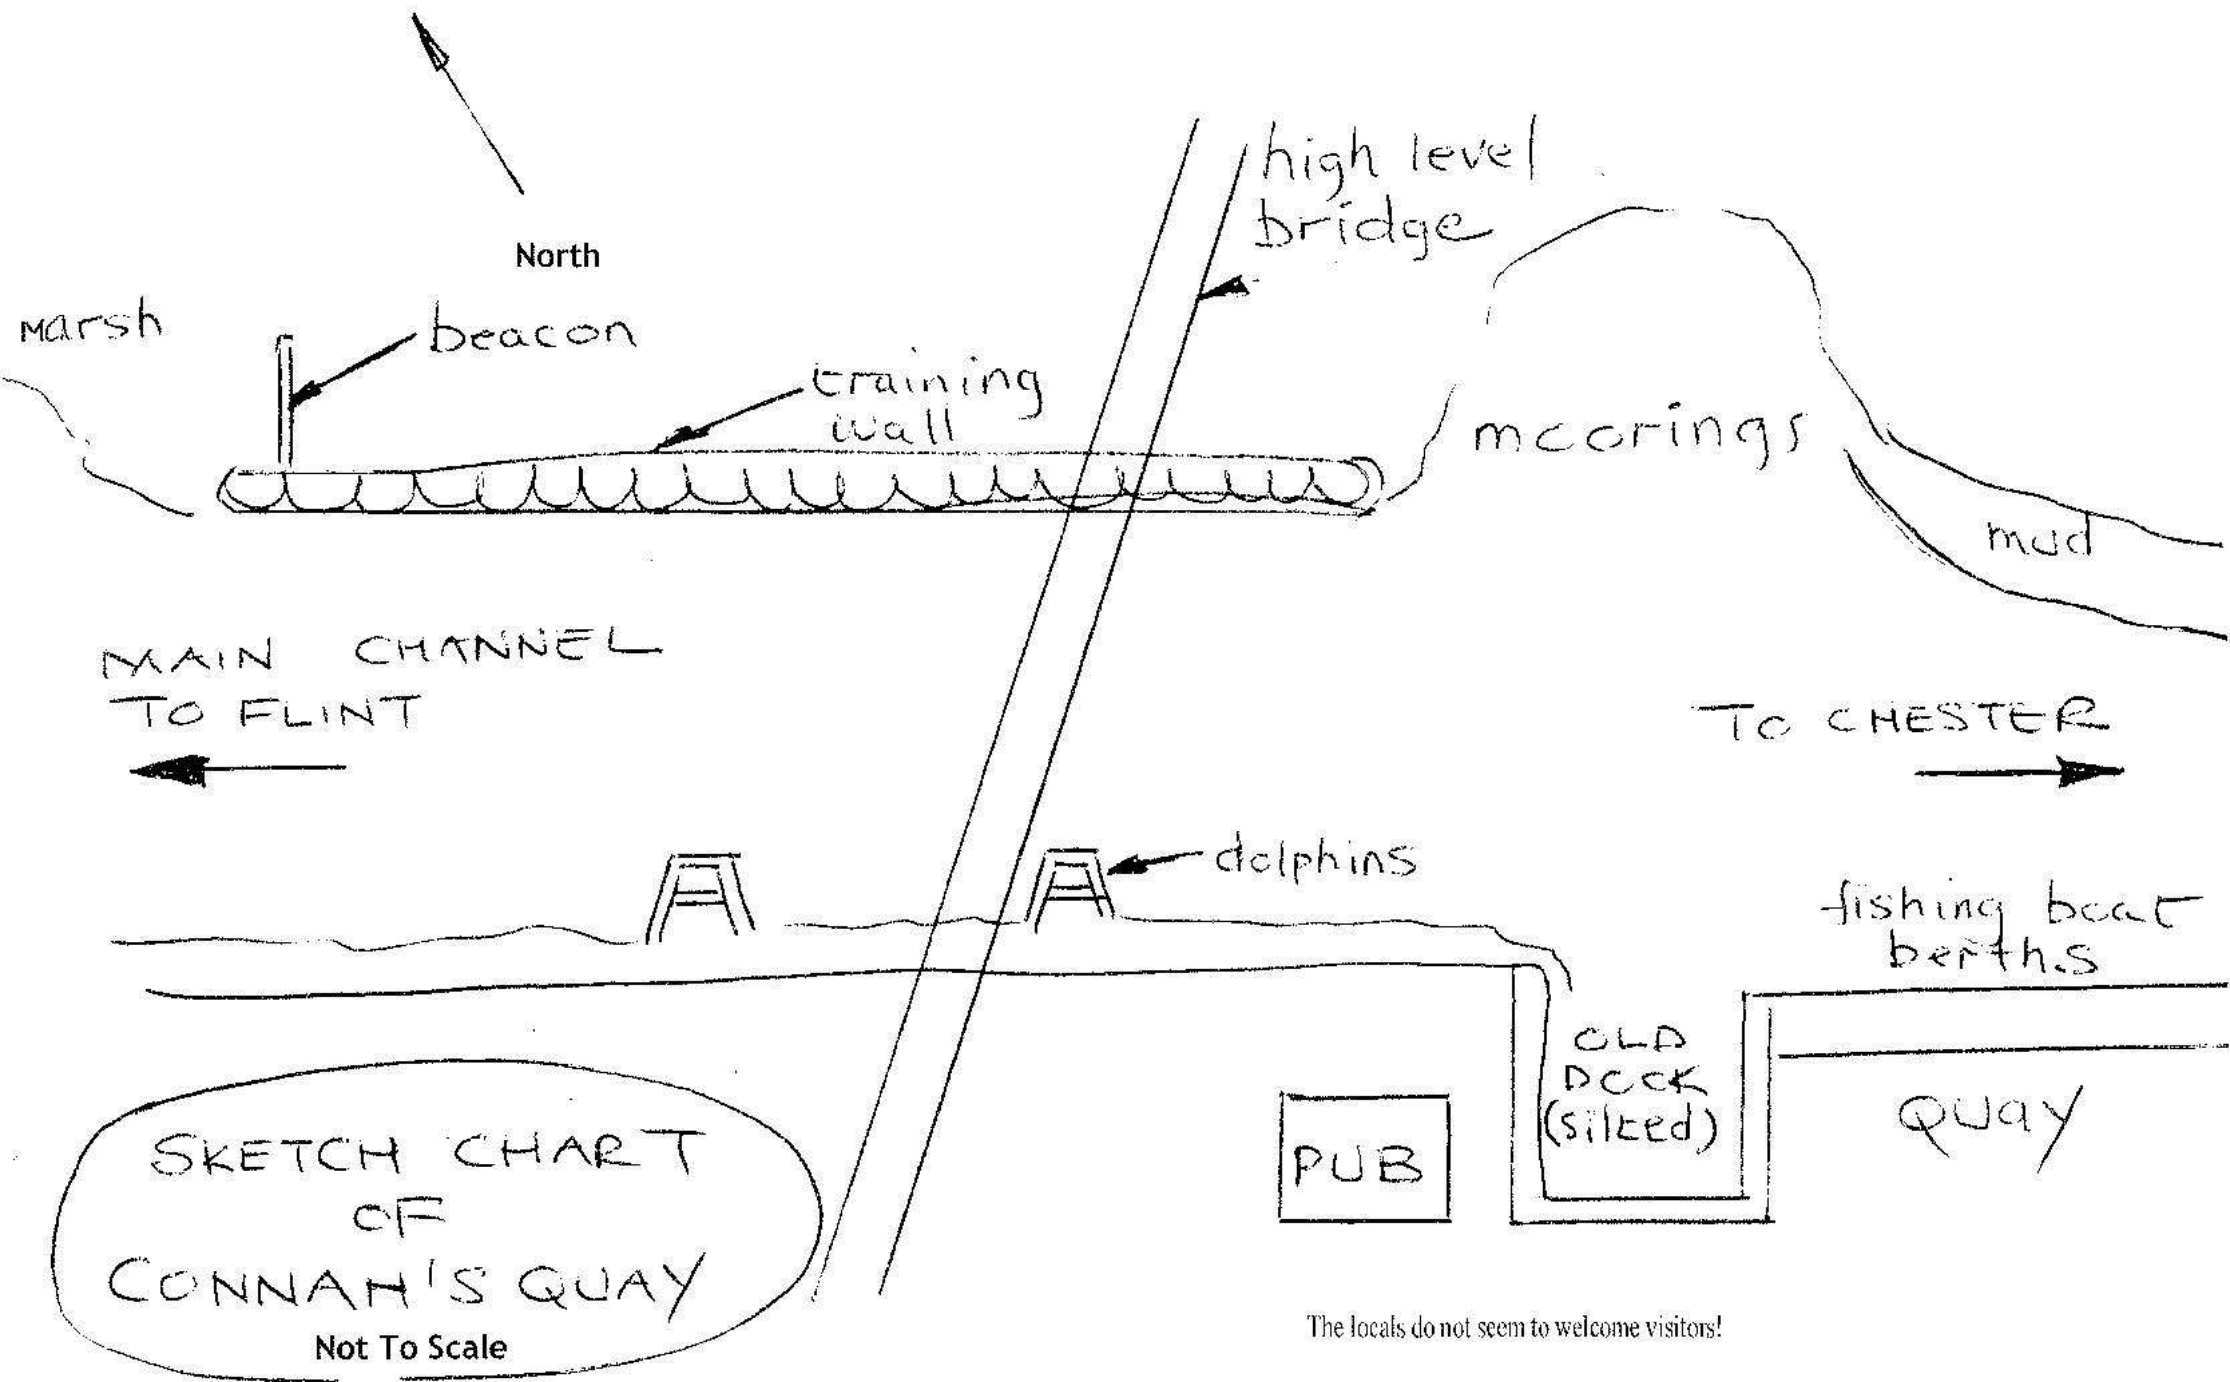 North
high level
bridge
marsh
beacon
training
wall
moorings
mud
MAIN CHANNEL
TO FLINT
TO CHESTER
dolphins
fishing boat
berths
OLD
DOCK
(silted)
QUAY
PUB
SKETCH CHART
OF
CONNAH'S QUAY
Not To Scale
The locals do not seem to welcome visitors!